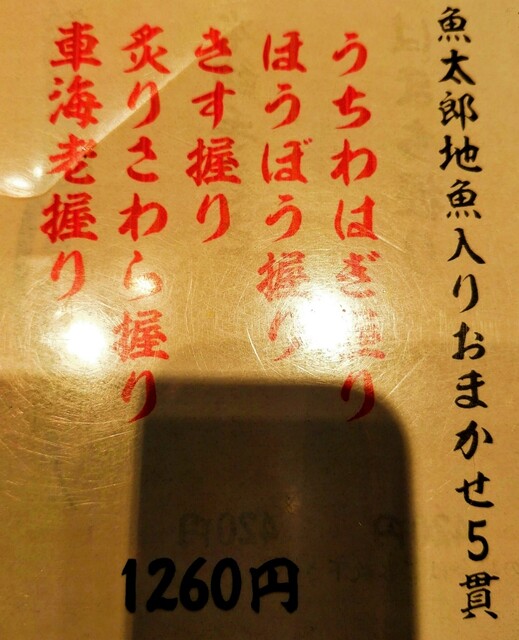 魚太郎地魚入りおまかせ5貫
うちわはぎ握り
ほうぼう握り
きす握り
炙りさわら握り
車海老握り
1260円